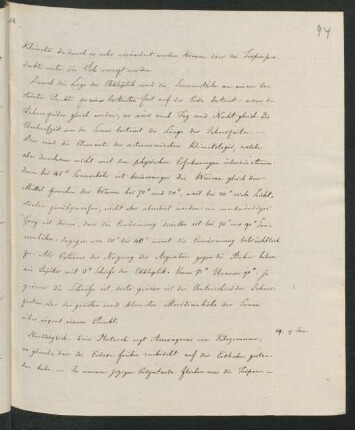 94
Klimaten da durch so sehr verändert werden können, dass die Tropenpro-
dukte unter die Pole versezt werden.
Durch die Lage der Ekkliptik wird die Sonnenhöhe an einem be-
stimten Punkte zu einer bestimten Zeit auf der Erde bestimt; wenn die
Jahreszeiten gleich werden, so wird auch Tag und Nacht gleich. Die
der Sonne bestimt die Länge der Jahreszeiten. —
Dies sind die Elemente der astronomischen Klimatologie, welche
aber durchaus nicht mit den physischen Erfahrungen übereinstimmen
denn bei 45° Sonnenhöhe ist keineswegs die Wärme gleich dem
Mittel zwischen der Wärme bei 70° und 20°, weil bei 20° viele Licht-
stralen zurükgeworfen, nicht aber absorbirt werden. Ein merkwürdiger
Gang ist dieser, dass die Erwärmung dieselbe ist bei 70° und 90° Son-
nenhöhe, dagegen von 20° bis 40° wird die Erwärmung beträchtlich
Extreme der Neigung des Aequators gegen die Bahn haben
am Jupiter mit 3° Schiefe der Ekkliptik. Venus 72° Uranus 90°, je
grösser die Schiefe ist, desto grösser ist der Unterschied der Jahres-
zeiten oder der grösten und kleinsten Meridianhöhe der Sonne
über irgend einem Punkte.
Nachträglich: beim Plutarch sagt Anaxagoras von Klazomenae,
er glaube dass die Erdaxe früher senkrecht auf der Erdbahn gestan-
den habe. — In unserm jezigen Zustande
19.